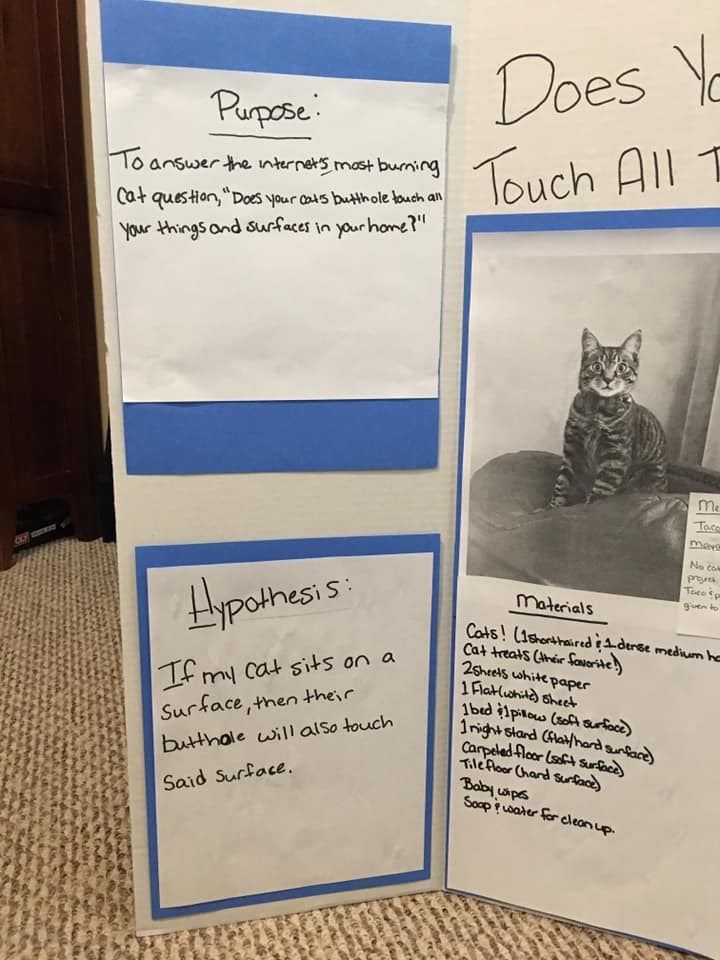 Purpose:
To answer the internet's most burning
cat question, "Does your cats butthole touch all
your things and surfaces in your home?"
Hypothesis:
If my cat sits on a
surface, then their
butthole will also touch
said surface.
Does Yo
Touch All T
Me
Taco
No cat
project
Taco & p
given to
Materials
Cats! (1 shorthaired & 1 dense medium ha
Cat treats (their favorite!)
2 sheets white paper
1 Flat (white) sheet
1 bed & 1 pillow (soft surface)
1 night stand (flat/hard surface)
Carpeted floor (soft surface)
Tile floor (hard surface)
Baby wipes
Soap & water for clean up.